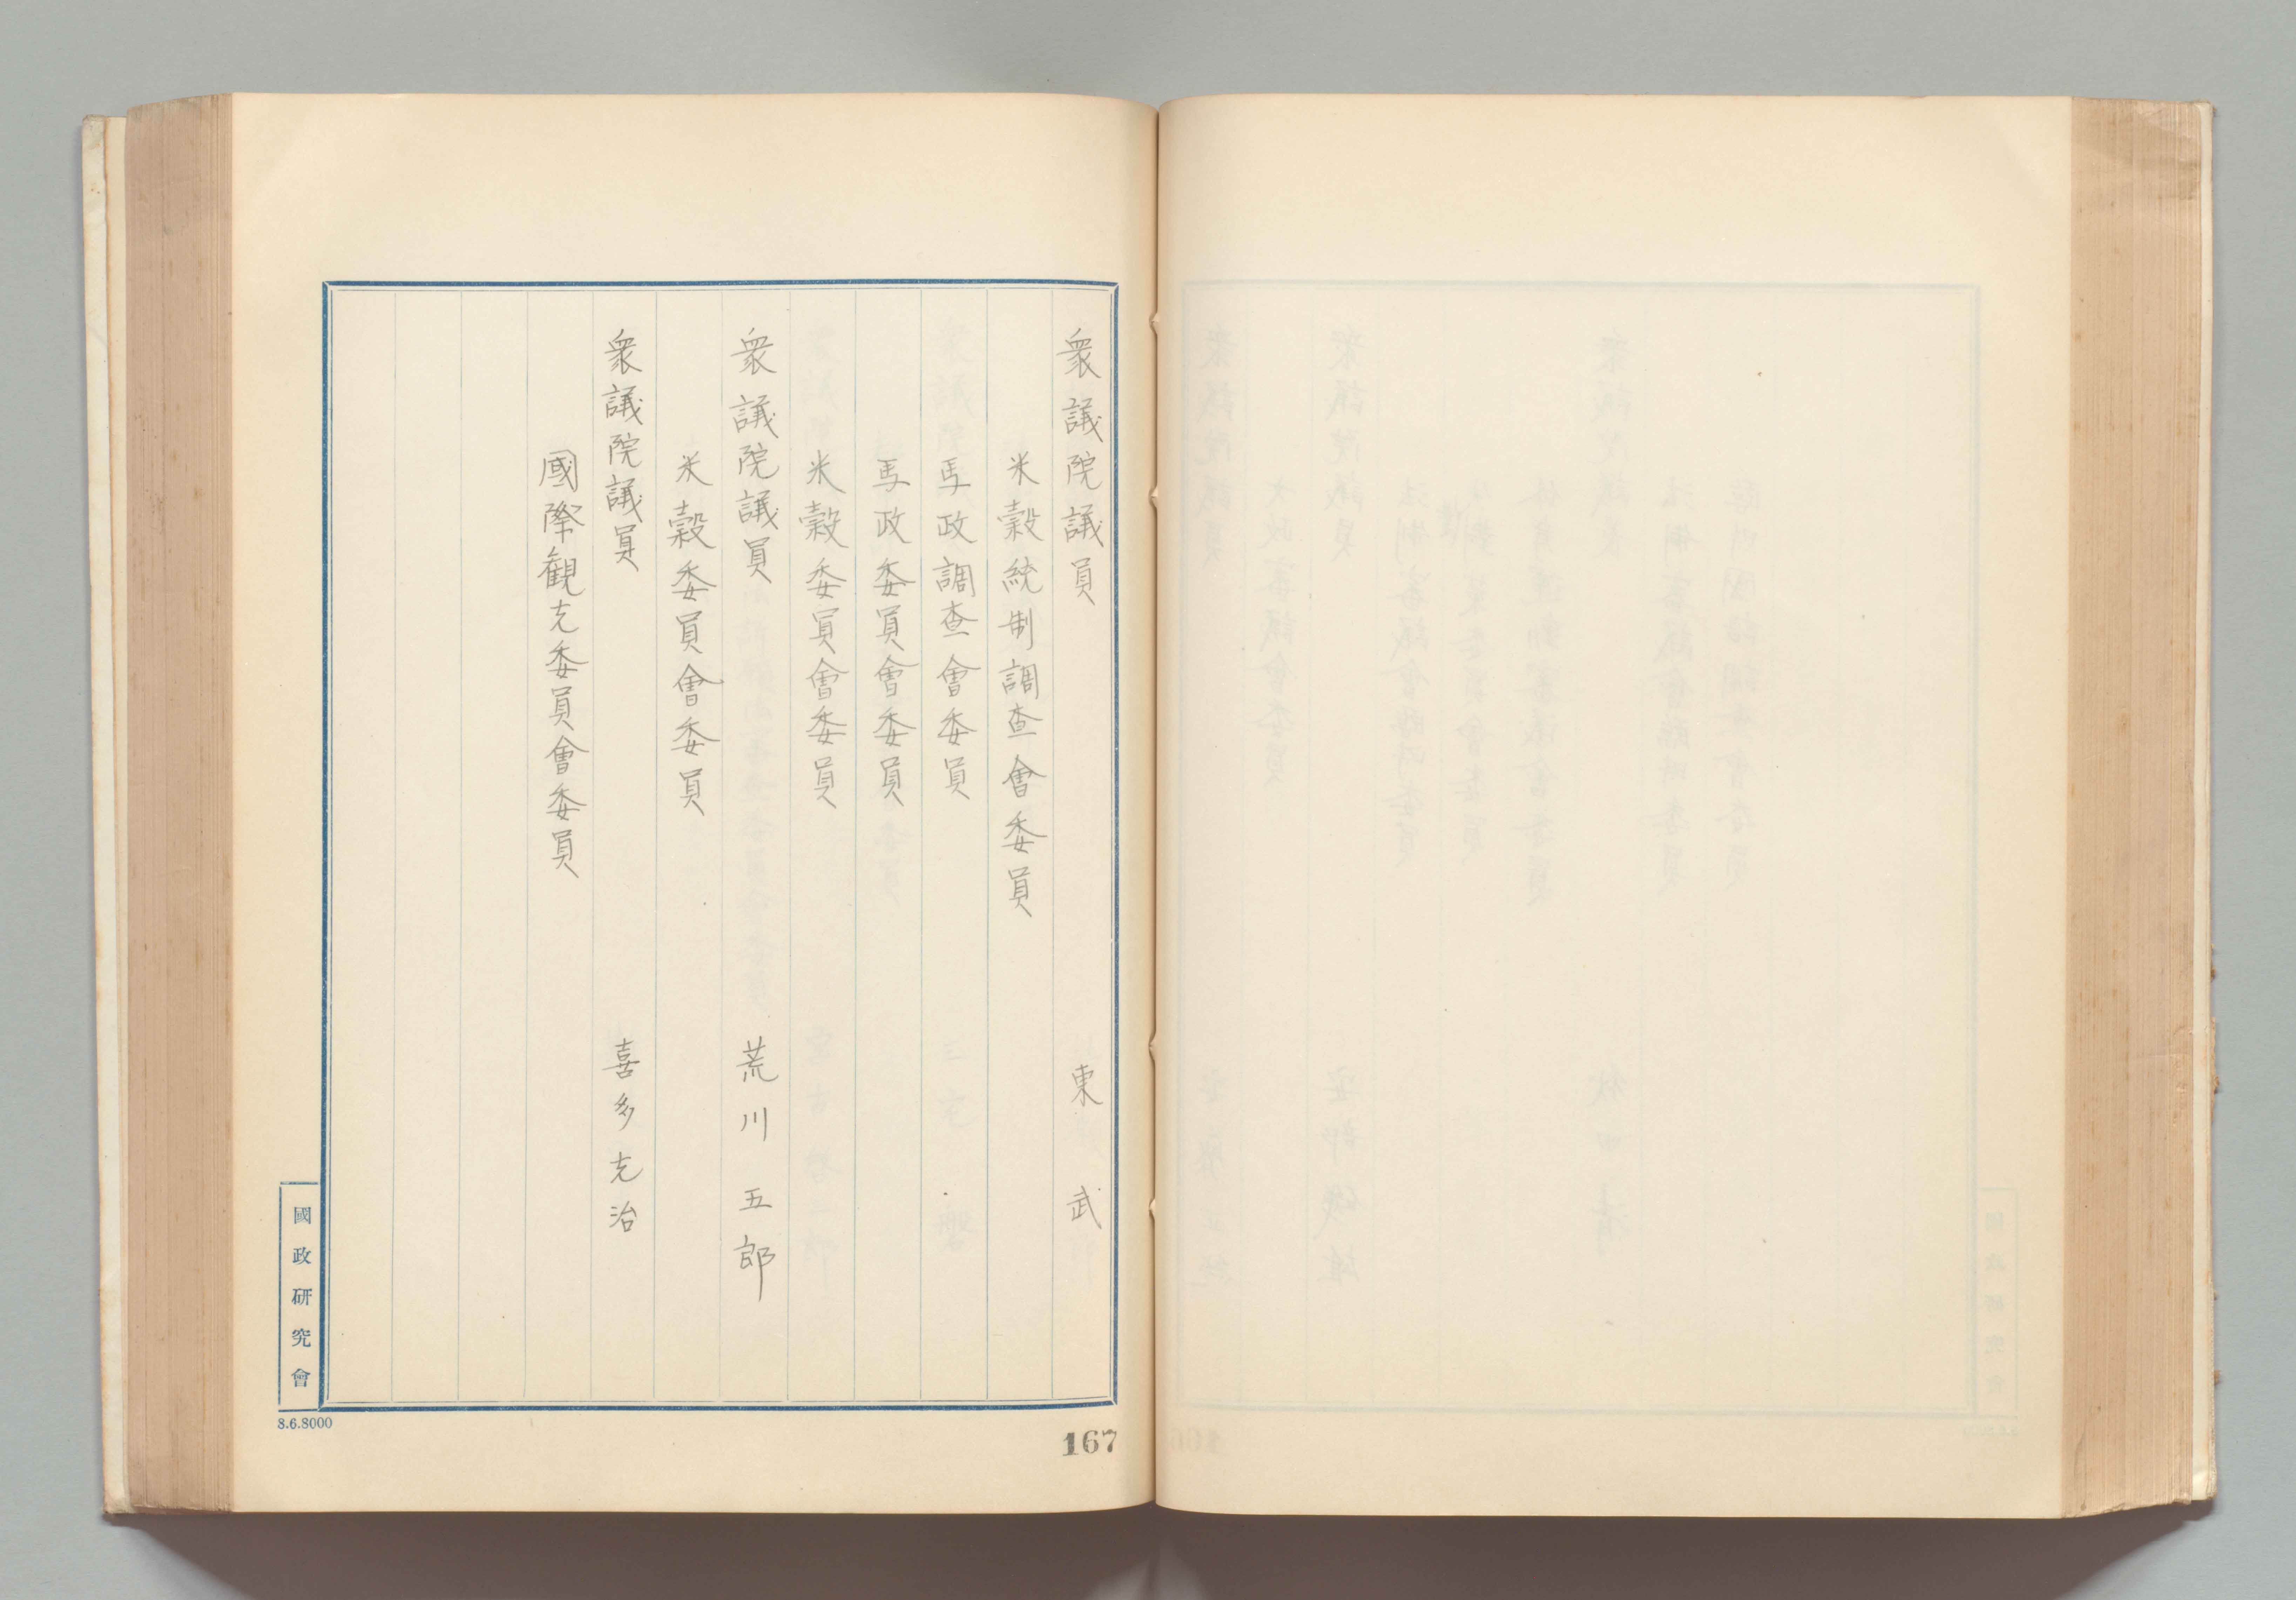 衆議院議員 東武
米穀統制調査會委員
馬政調査會委員
馬政委員會委員
米穀委員會委員
衆議院議員 荒川五郎
米穀委員會委員
衆議院議員 喜多光治
國際観光委員會委員
國政研究會
8.6.8000
167